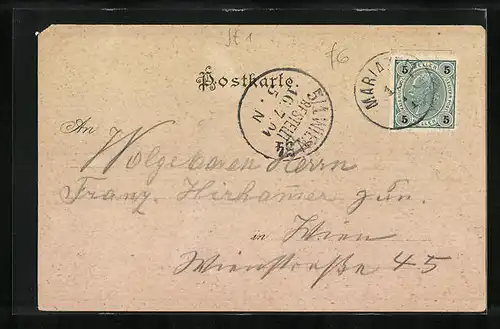 St 1
f6
Postkarte
MARIA
5 5
5 5
5/1 WIEN
BESTELLT
16.7.01
5.N
An
Wolgeboren Herrn
Franz Hirhammer jun.
in Wien
Wienstraße 45